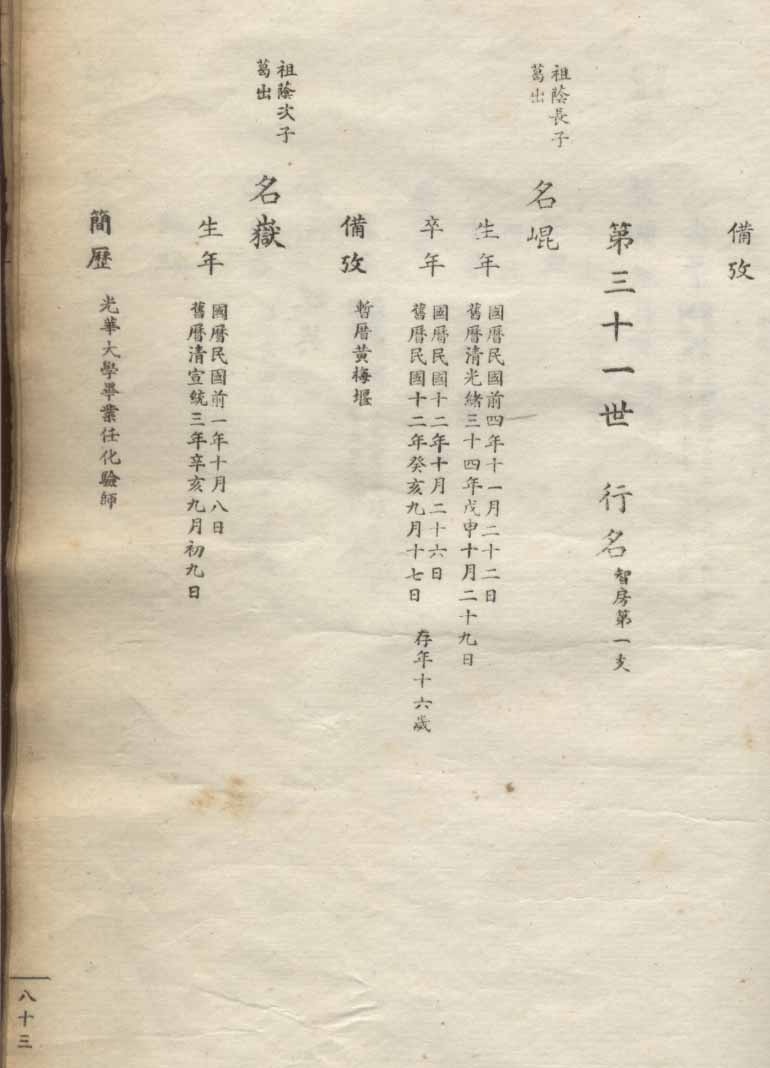 備攷
第三十一世　行名　智房第一支
祖蔭長子
葛出
名崐
生年
國曆民國前四年十一月二十二日
舊曆清光緒三十四年戊申十月二十九日
卒年
國曆民國十二年十月二十六日
舊曆民國十二年癸亥九月十七日　存年十六歲
備攷
暫厝黃梅堰
祖蔭次子
葛出
名嶽
生年
國曆民國前一年十月八日
舊曆清宣統三年辛亥九月初九日
簡歷　光華大學畢業任化驗師
八十三